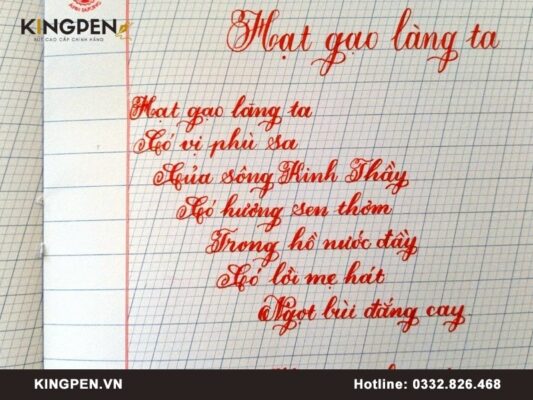 ÁNH DƯƠNG
KINGPEN
BÚT CAO CẤP CHÍNH HÃNG
Hạt gạo làng ta
Hạt gạo làng ta
Có vị phù sa
Của sông Kinh Thầy
Có hương sen thơm
Trong hồ nước đầy
Có lời mẹ hát
Ngọt bùi đắng cay
KINGPEN.VN
Hotline: 0332.826.468